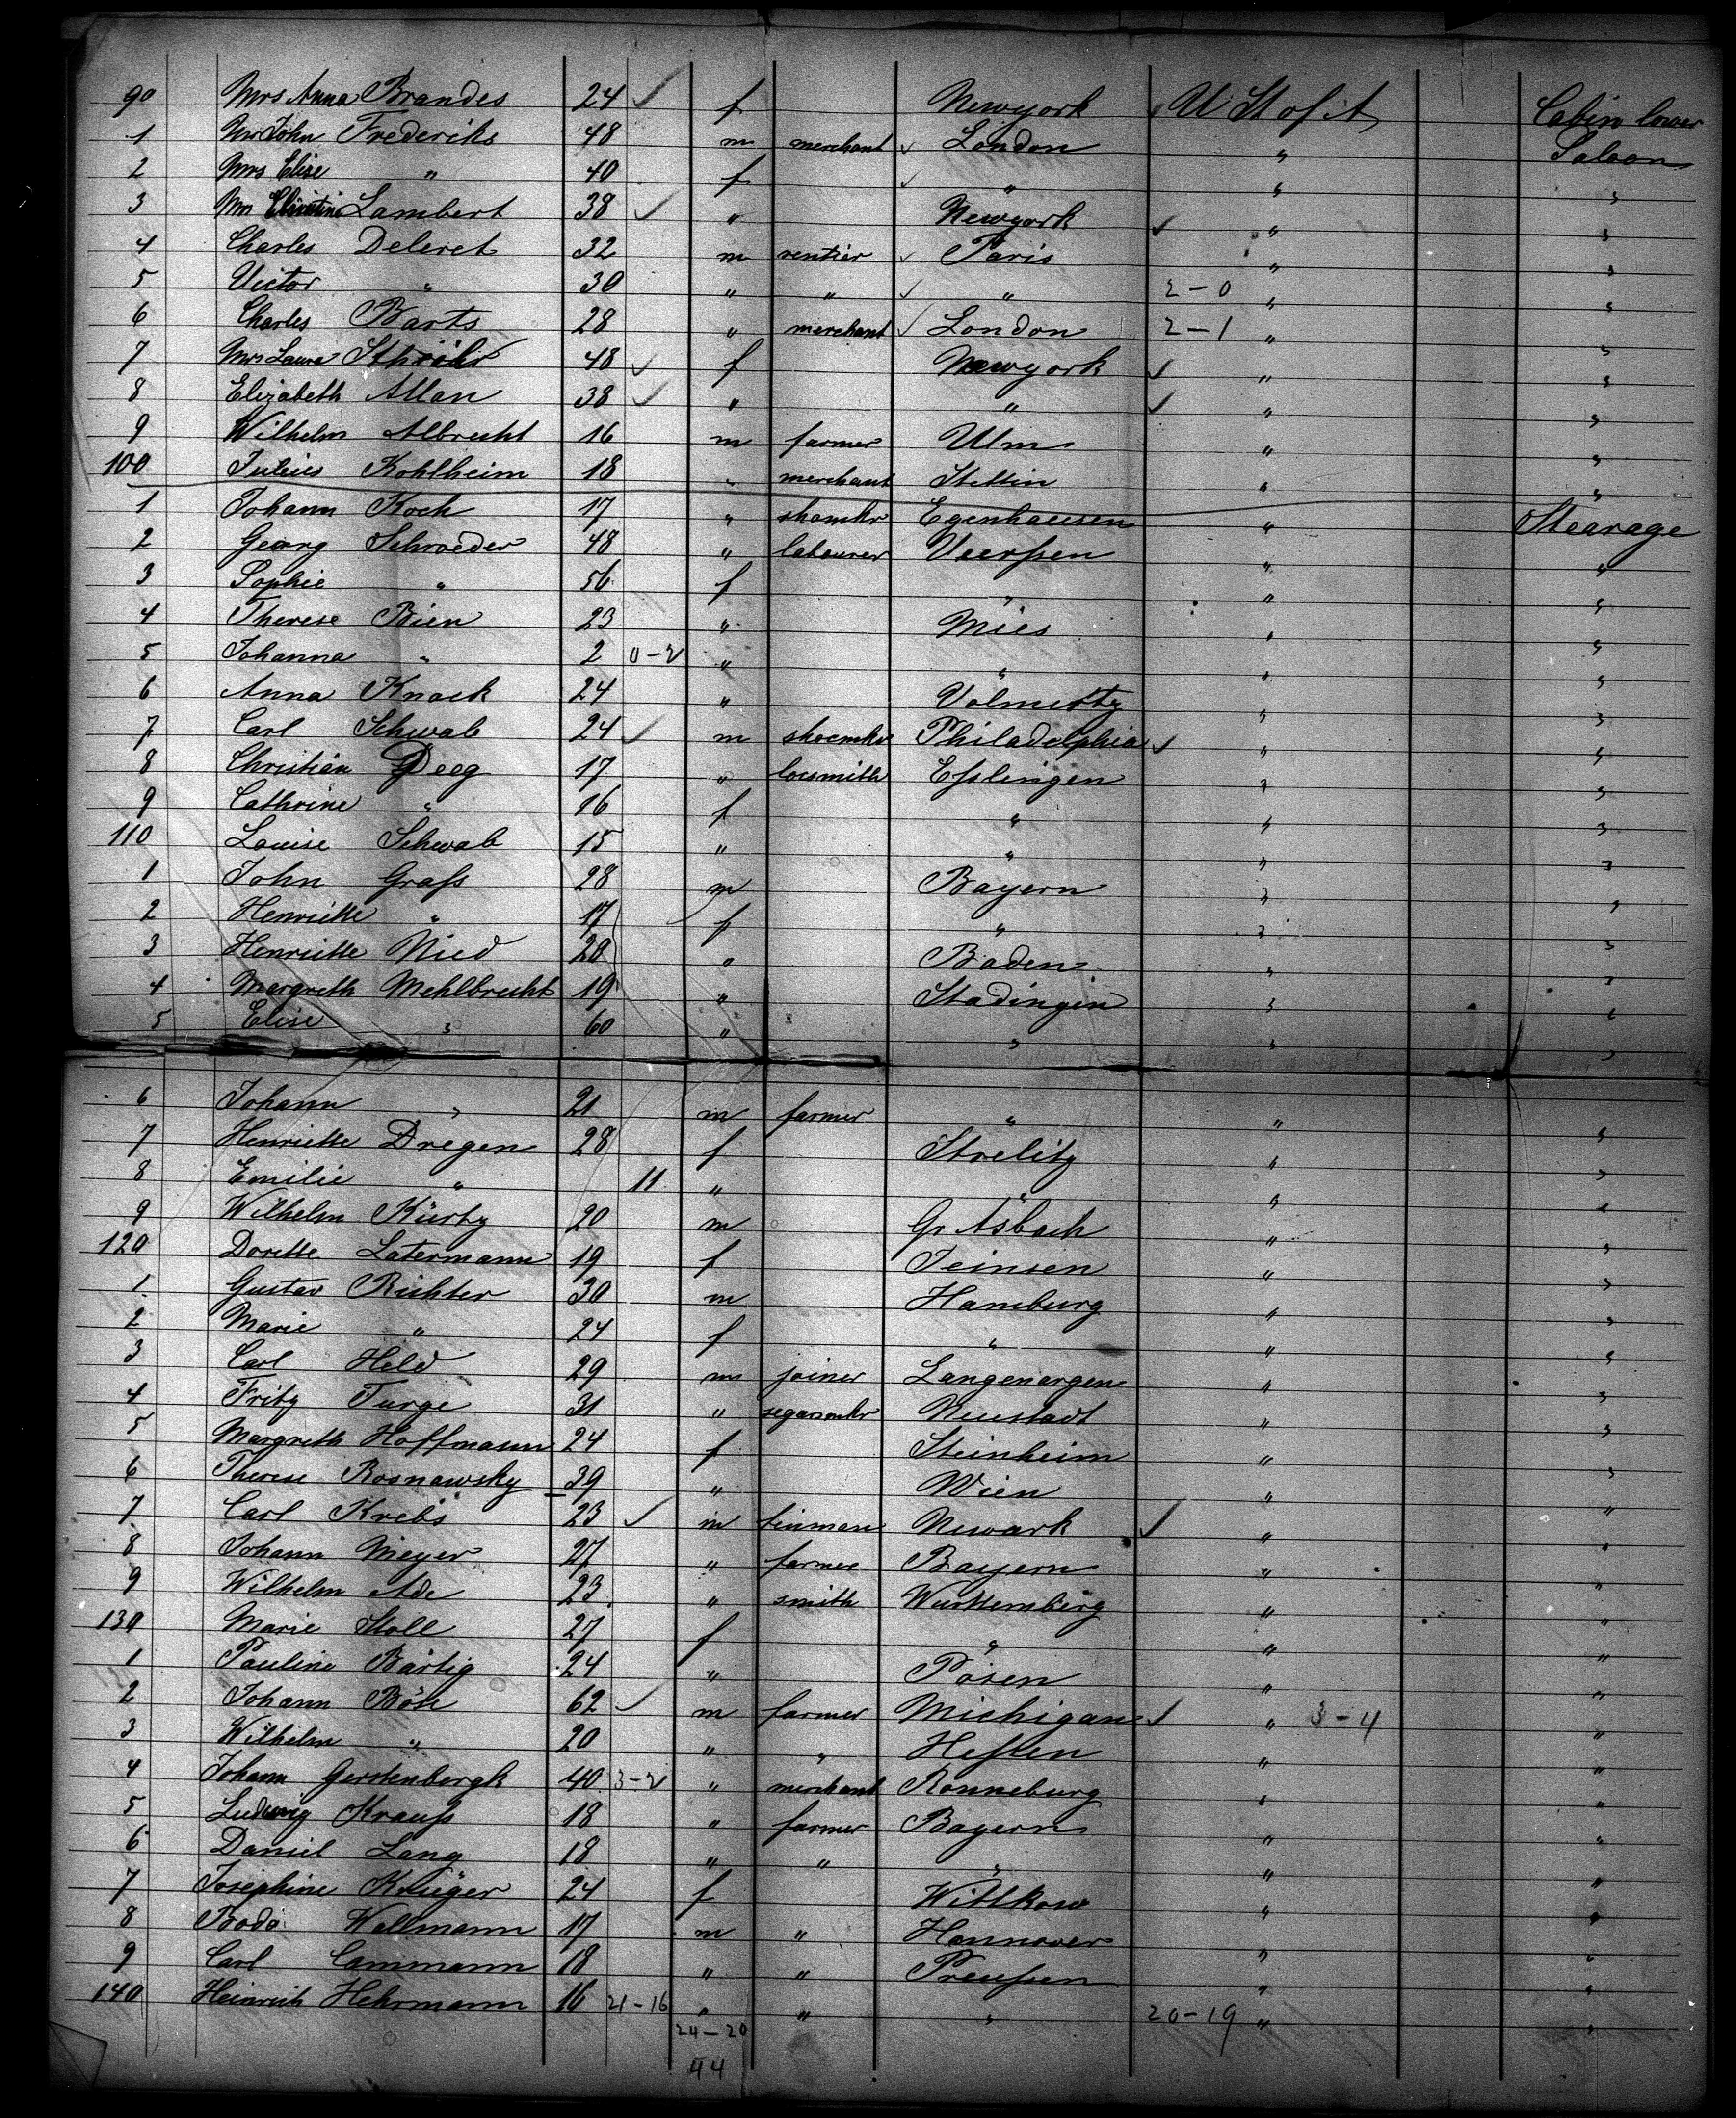 90 Mrs Anna Brandes 24 ✓ f Newyork ✓ U St of A Cabin lower
1 Mr John Frederiks 48 m merchant ✓ London " Saloon
2 Mrs Elise " 40 f ✓ " " "
3 Mrs Lambert 38 ✓ " Newyork ✓ " "
4 Charles Deleret 32 m rentier ✓ Paris " "
5 Victor " 30 " " ✓ " 2-0 " "
6 Charles Barts 28 " merchant ✓ London 2-1 " "
7 Mrs Laura 48 ✓ f Newyork ✓ " "
8 Elizabeth Allan 38 ✓ " " ✓ " "
9 Wilhelm Albrecht 16 m farmer Ulm " "
100 Julius Kohlheim 18 " merchant Stettin " "
1 Johann Koch 17 " shomkr Egenhausen " Stearage
2 Georg Schroeder 48 " labourer Veerssen " "
3 Sophie " 56 f " " "
4 Therese Bien 23 " Mies " "
5 Johanna " 2 0-2 " " " "
6 Anna Knack 24 " " "
7 Carl Schwab 24 ✓ m shoemkr Philadelphia ✓ " "
8 Christian Deeg 17 " locsmith Esslingen " "
9 Cathrine " 16 f " " "
110 Louise Schwab 15 " " " "
1 John Grafs 28 m Bayern " "
2 Henriette " 17 f " " "
3 Henriette Nied 20 " Baden " "
4 Margreth Mehlbrecht 19 " Stadingin " "
5 Elise " 60 " " " "
6 Johann " 21 m farmer " " "
7 Henriette Dregen 28 f Strelitz " "
8 Emilie " 11 " " " "
9 Wilhelm Kürtz 20 m Gr Asbach " "
120 Dorette Latermann 19 f Jeinsen " "
1 Gustav Richter 30 m Hamburg " "
2 Marie " 24 f " " "
3 Carl Held 29 m joiner Langenargen " "
4 Fritz Turge 31 " segarmkr Neustadt " "
5 Margreth Hoffmann 24 f Steinheim " "
6 Therese Rosnawsky 39 " Wien " "
7 Carl Krebs 23 ✓ m tinman Newark ✓ " "
8 Johann Meyer 27 " farmer Bayern " "
9 Wilhelm Ade 23 " smith Wurttemberg " "
130 Marie Stoll 27 f " " "
1 Pauline Bärtig 24 " Posen " "
2 Johann Böse 62 ✓ m farmer Michigan ✓ " 3-4 "
3 Wilhelm " 20 " " Hessen " "
4 Johann Gerstenbergk 40 3-2 " merchant Ronneburg " "
5 Ludwig Krauss 18 " farmer Bayern " "
6 Daniel Lang 18 " " " " "
7 Josephine Krüger 24 f Wittkow " "
8 Bodo Wallmann 17 m " Hannover " "
9 Carl Cammann 18 " " Preussen " "
140 Heinrich Hehrmann 16 21-16 " " " 20-19 " "
24-20
44